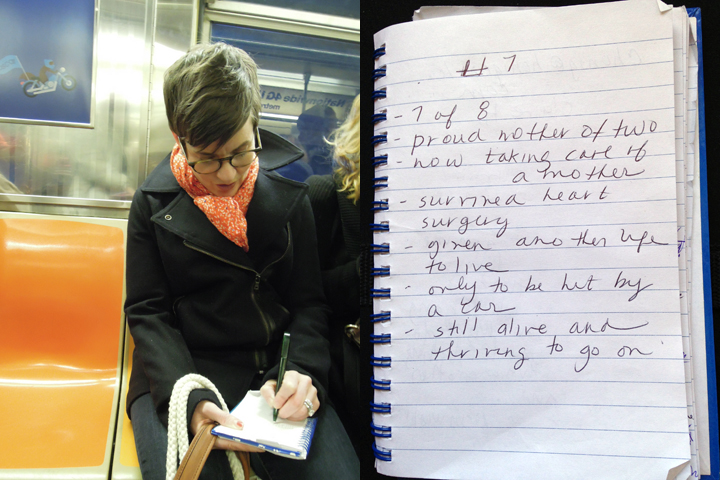 Nationwide 4G
metr
# 7
- 7 of 8
- proud mother of two
- now taking care of
a mother
- survived heart
surgery
- given another life
to live
- only to be hit by
a car
- still alive and
thriving to go on